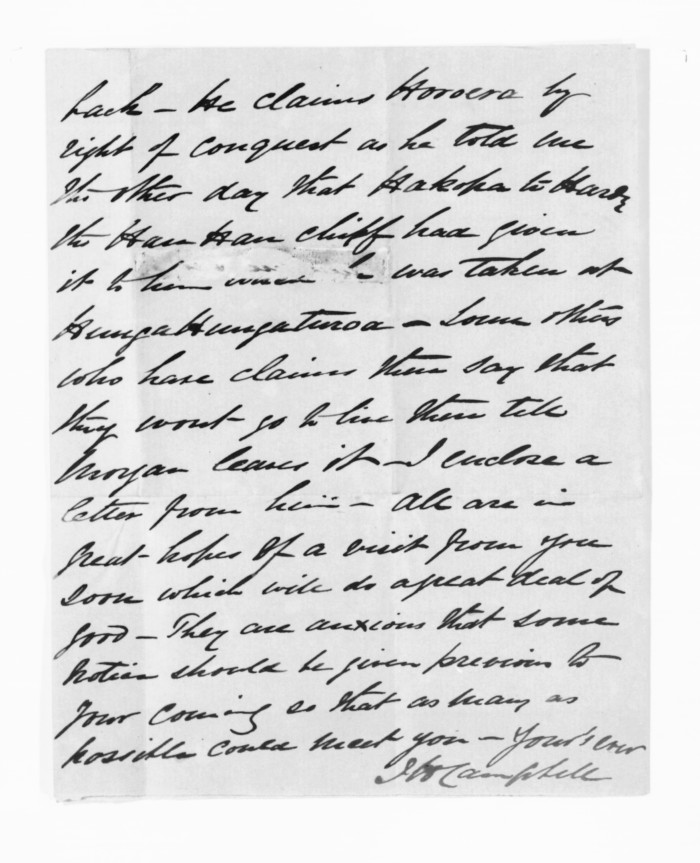 back - He claims Horoera by
right of conquest as he told me
the other day that Hakopa te
the Hau Hau chiff had given
it to him when he was taken at
HungaHungaturoa - Some others
who have claims there say that
they wont go to live there till
Morgan leaves it - I enclose a
letter from him - All are in
great hopes of a visit from you
soon which will do a great deal of
good - They are anxious that some
notice should be given previous to
your coming so that as many as
possible could meet you - Your's ever
J H Campbell